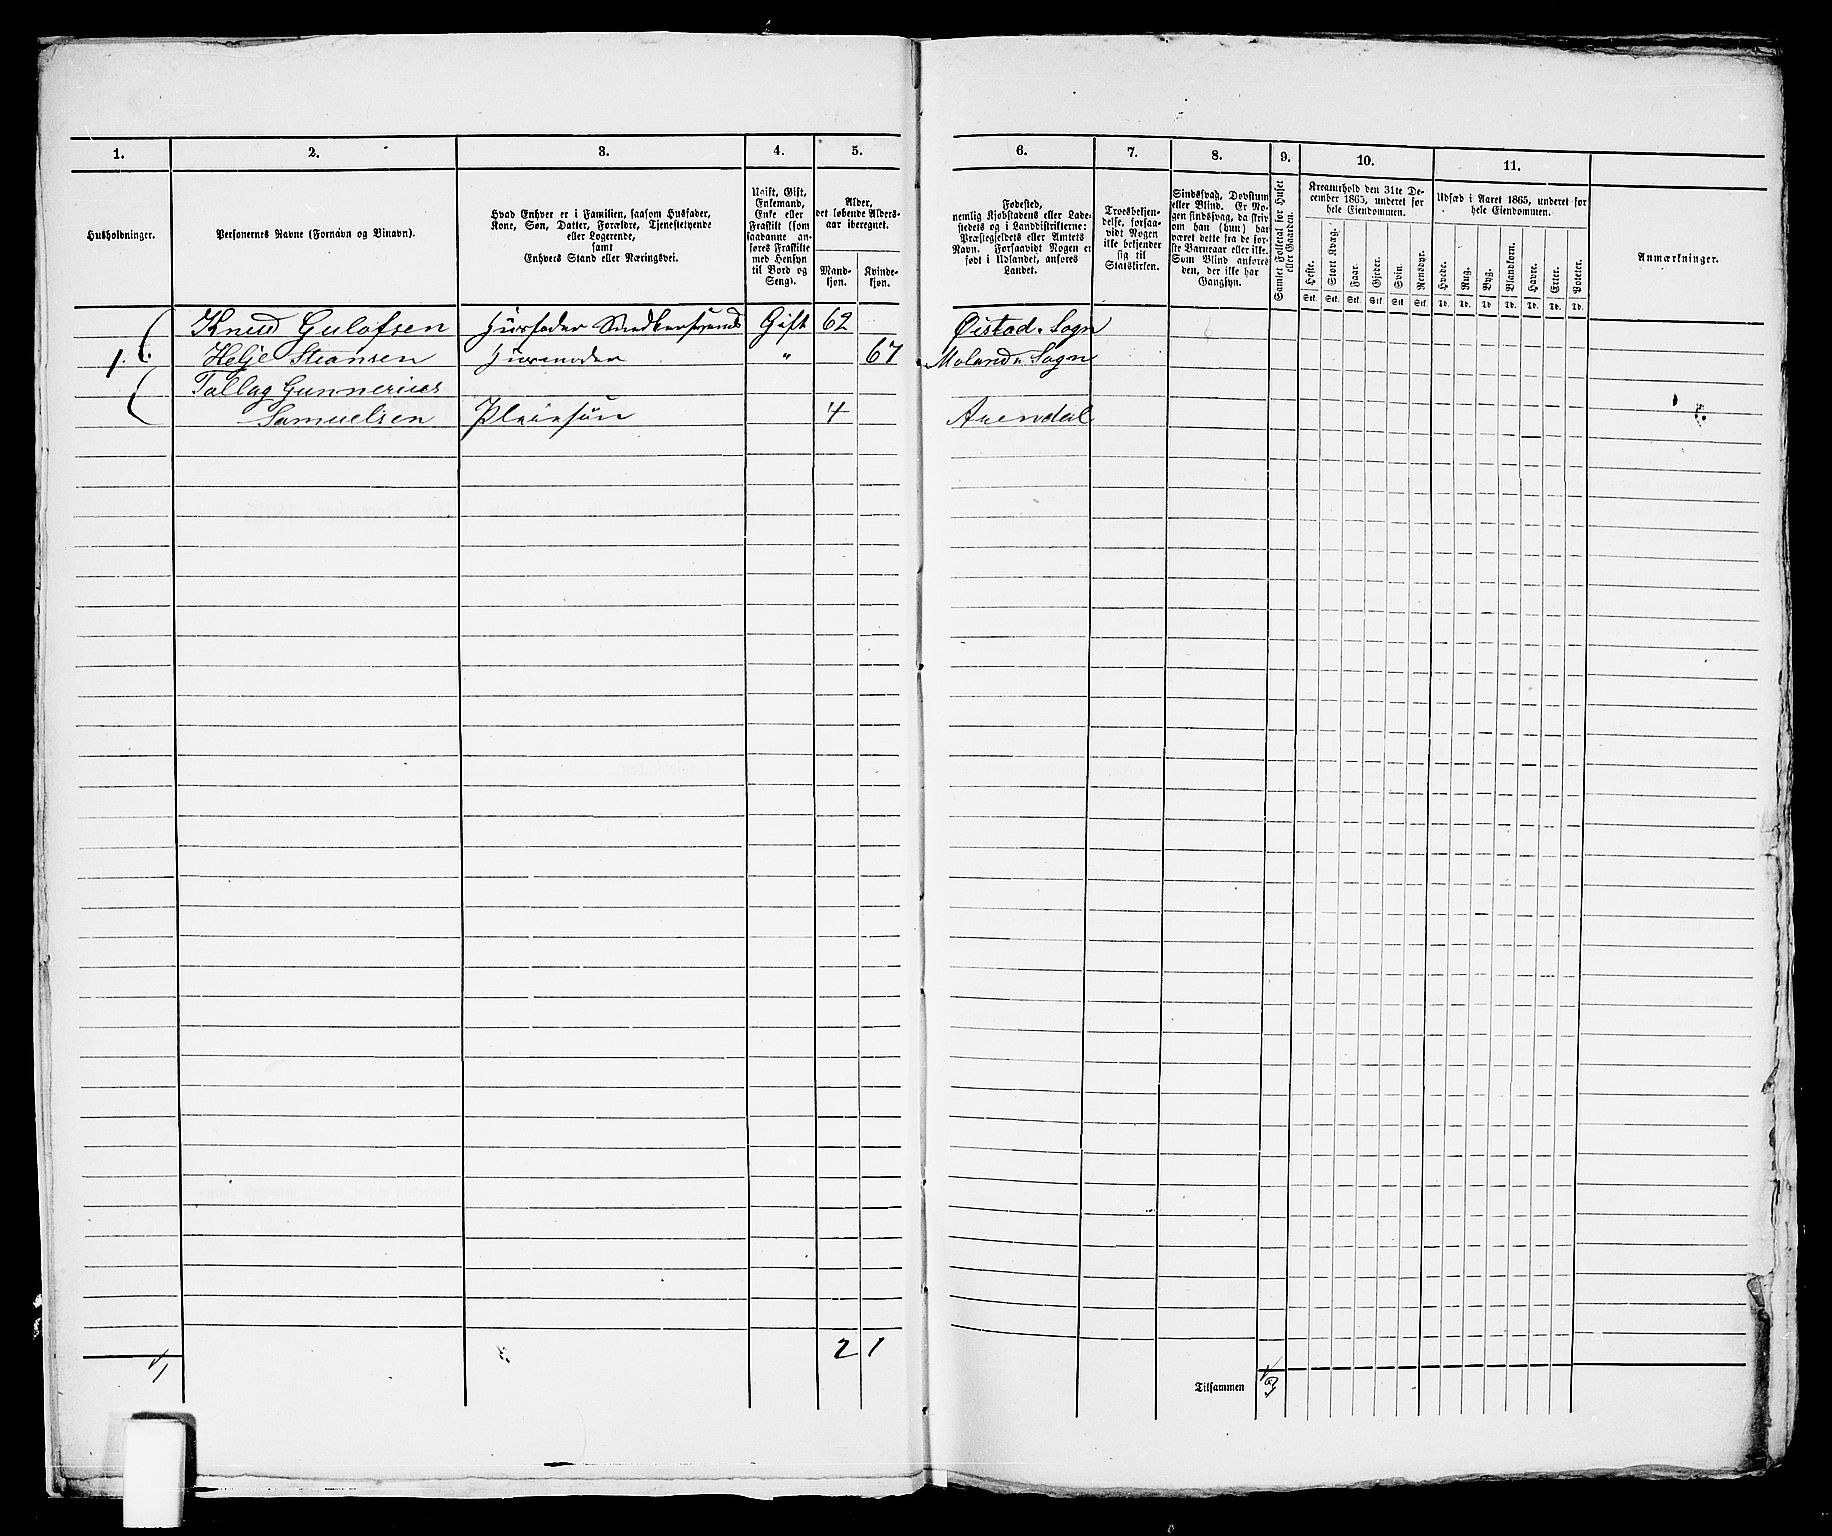 1.
2.
3.
4.
5.
Husholdninger.
Personernes Navne (Fornavn og Binavn).
Hvad Enhver er i Familien, saasom Husfader,
Kone, Søn, Datter, Forældre, Tjenestetyende
eller Logerende,
samt
Enhvers Stand eller Næringsvei.
Ugift, Gift,
Enkemand,
Enke eller
Fraskilt (som
saadanne an-
føres Fraskilte
med Hensyn
til Bord og
Seng).
Alder,
det løbende Alders-
aar iberegnet.
Mand-
kjøn.
Kvinde-
kjøn.
Knud Gulofsen Husfader Gift 62
1. Helje Steansen Husmoder " 67
Tallag Gunnerius
Samuelsen Pleiesøn 4
2 1
1
6.
7.
8.
9.
10.
11.
Fødested,
nemlig Kjøbstadens eller Lade-
stedets og i Landdistrikterne:
Præstegjeldets eller Amtets
Navn. Forsaavidt Nogen er
født i Udlandet, anføres
Landet.
Troesbekjen-
delse, forsaa-
vidt Nogen
ikke bekjender
sig til
Statskirken.
Sindssvag, Døvstum
eller Blind. Er No-
gen sindssvag, da skriv
om han (hun) har
været dette fra de før-
ste Barneaar eller ikke.
Som Blind anføres
den, der ikke har
Gangsyn.
Samlet Folketal for Huset
eller Gaarden.
Kreaturhold den 31te De-
cember 1865, underet for
hele Eiendommen.
Heste.
Stort Kvæg.
Faar.
Gjeder.
Svin.
Rensdyr.
Stk. Stk. Stk. Stk. Stk. Stk.
Udsæd i Aaret 1865, underet for
hele Eiendommen.
Hvede.
Rug.
Byg.
Blandkorn.
Havre.
Erter.
Poteter.
Td. Td. Td. Td. Td. Td. Td.
Anmærkninger.
Øistad Sogn
Moland Sogn
Arendal
Tilsammen 3